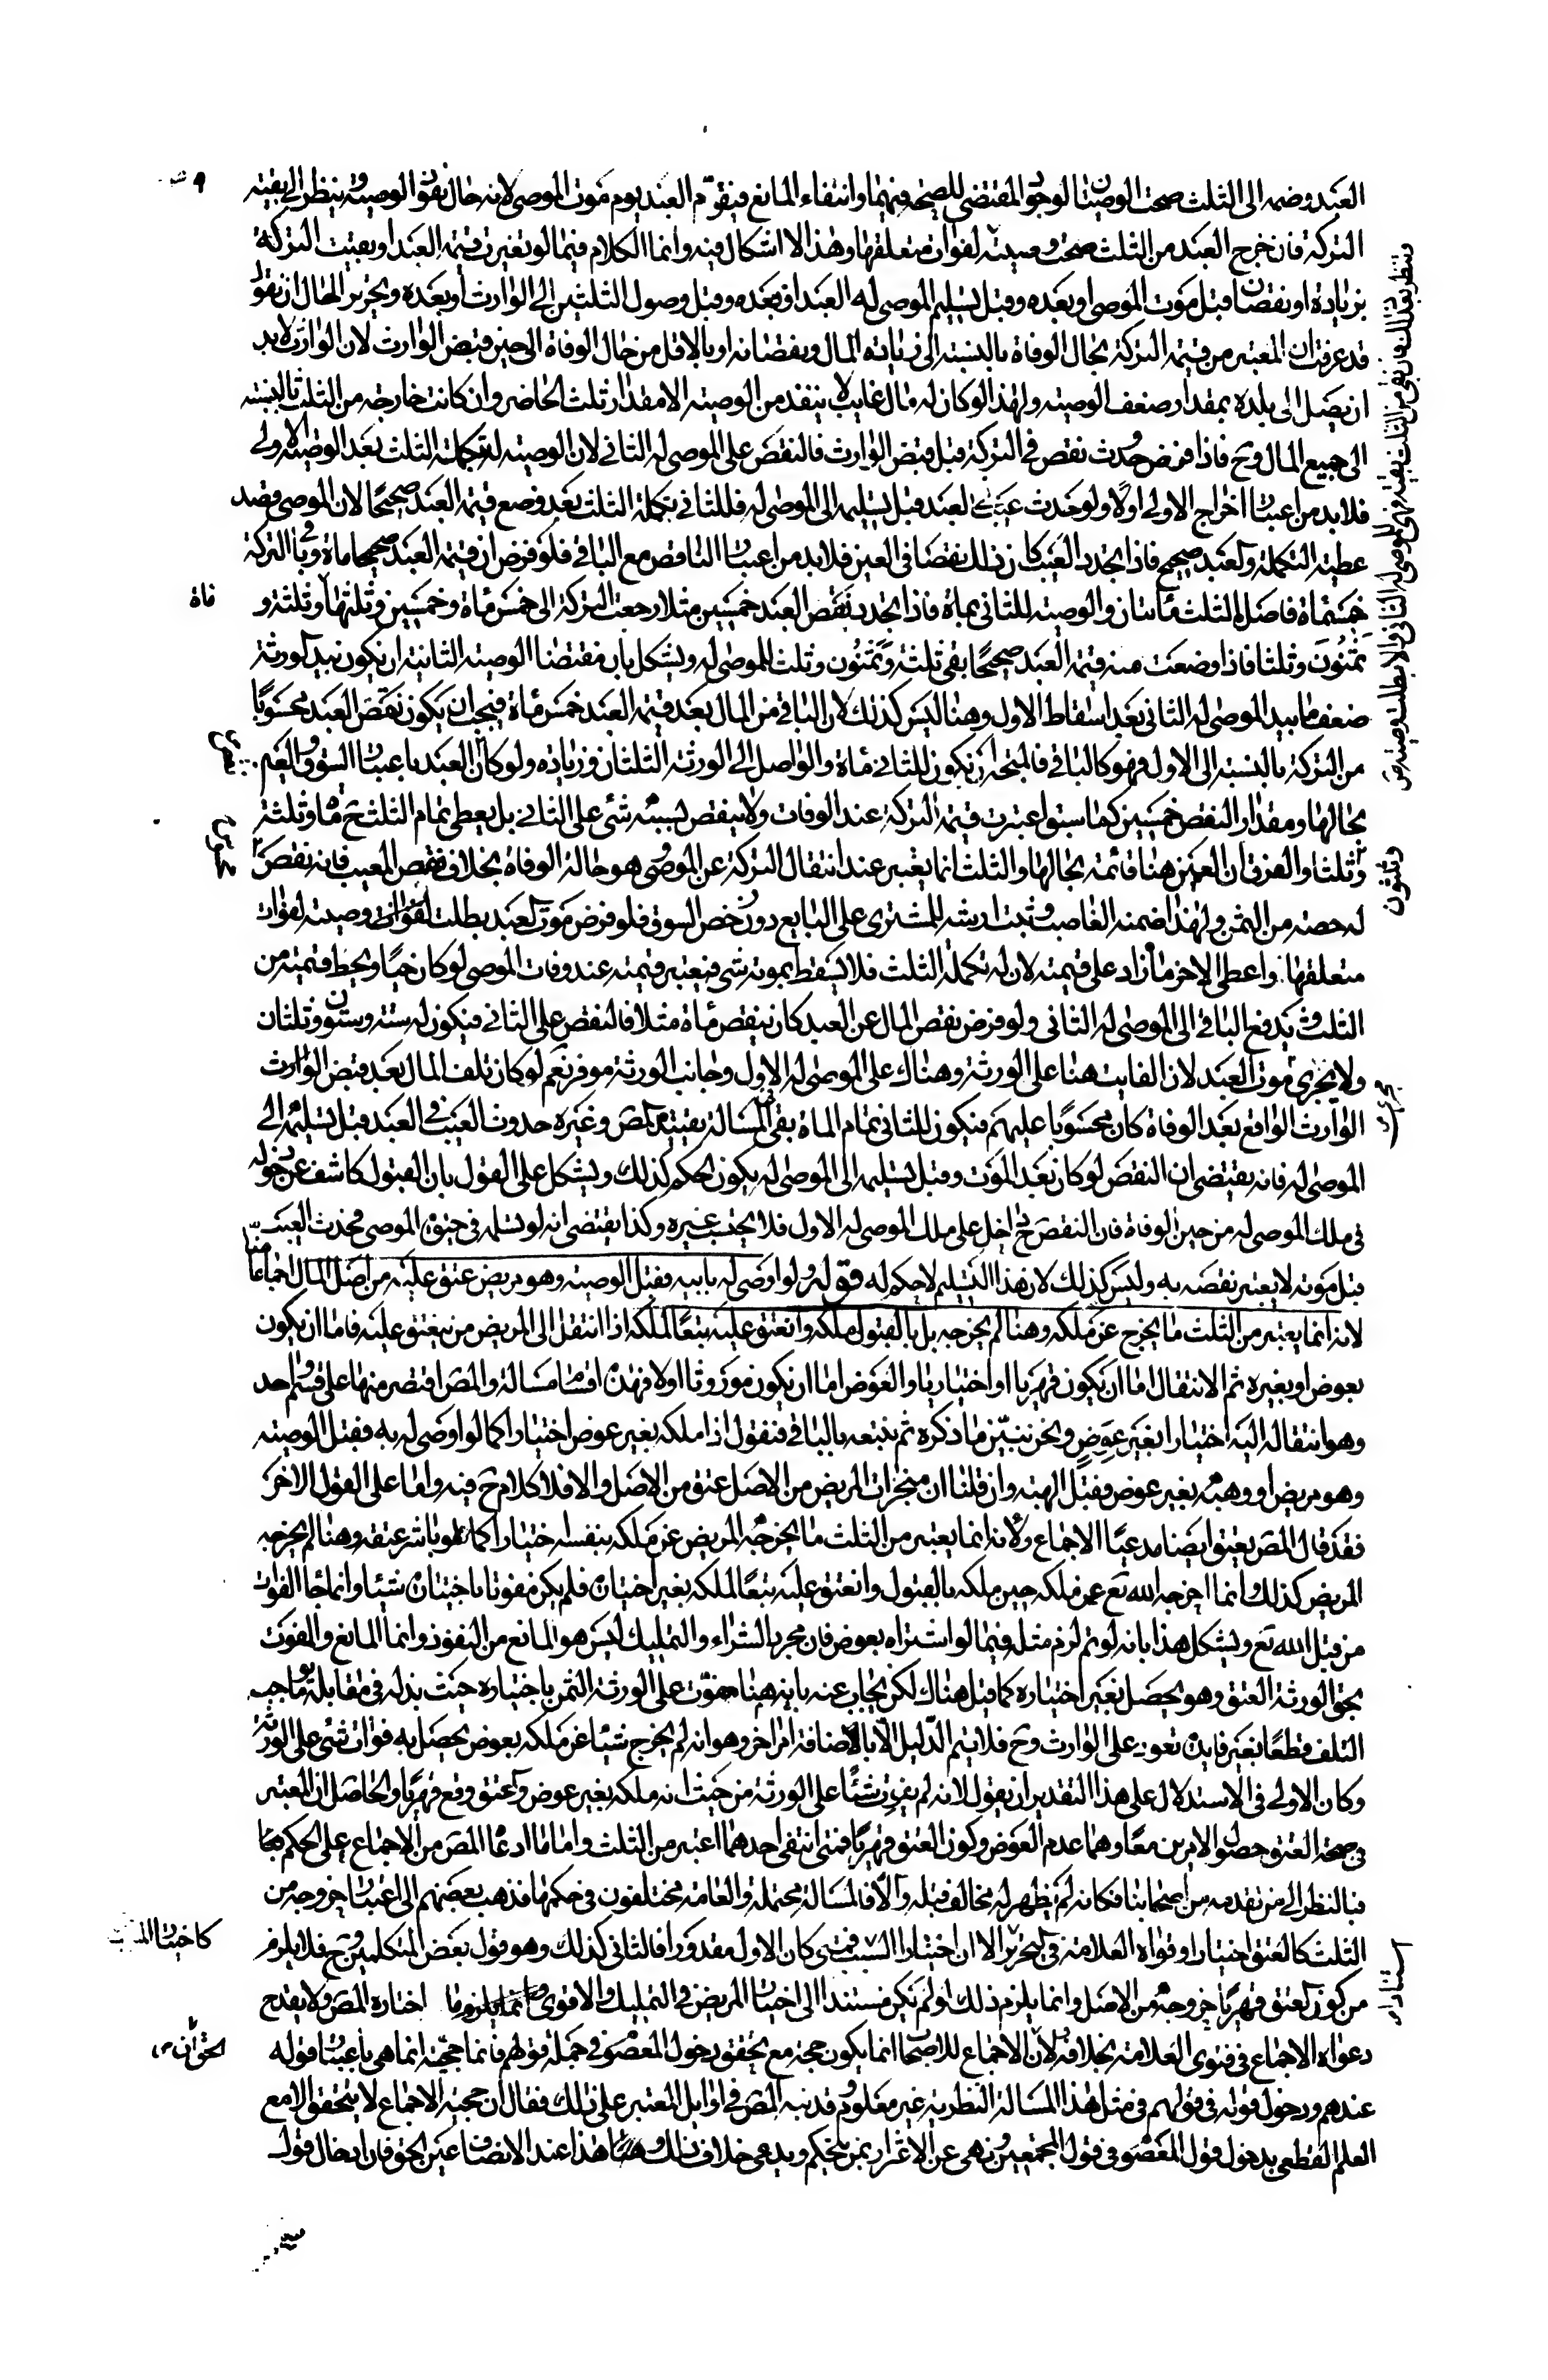 العبد وضمه الى الثلث صحت الوصيتان لوجود المقتضى للصحة فيهما وانتفاء المانع فيقوّم العبد يوم موت الموصى لانه حال نفوذ الوصية وينظر الى بقية
التركة فان خرج العبد من الثلث صحت وصيته لفوات متعلقها وهذا لا اشكال فيه وانما الكلام فيما لو تغيرت قيمة العبد او بقيت التركة
بزيادة او نقصان قبل موت الموصى او بعده وقبل تسليم الموصى له العبد او بعده وقبل وصول الثلثين الى الوارث او بعده وتحرير الحال ان نقول
قد عرفت ان المعتبر من قيمة التركة بحال الوفاة بالنسبة الى زيادة المال ونقصانه او بالاقل من حال الوفاة الى حين قبض الوارث لان الوارث لابد
ان يصل الى يده بمقدار ضعف الوصية ولهذا لو كان له مال غايب لا ينفذ من الوصية الا مقدار ثلث الحاضر وان كانت خارجة من الثلث بالنسبة
الى جميع المال وح فاذا فرض حدوث نقص في التركة قبل قبض الوارث فالنقص على الموصى له الثاني لان الوصية له تكملة الثلث بعد الوصية الاولى
فلا بد من اعتبار اخراج الاولى اولا ولو حدث عيب في العبد قبل تسليمه الى الموصى له فللثاني تكملة الثلث بعد وضع قيمة العبد صحيحا لان الموصى قصد
عطية التكملة والعبد صحيح فاذا تجدد العيب كان ذلك نقصا في العين فلا بد من اعتبار الناقص مع الباقي فلو فرض ان قيمة العبد صحيحا ماة وباقي التركة
خمسماة فاصل الثلث مأتان والوصية للثاني بماة فاذا تجدد نقص العبد خمسين مثلا رجعت التركة الى خمس ماة وخمسين وثلثها ماة وثلثة و
ثمنون وثلث فاذا وضعت منه قيمة العبد صحيحا بقى ثلثة وثمنون وثلث للموصى له ويشكل بان مقتضا الوصية الثانية ان يكون بيد الورثة
ضعف ما بيد الموصى له الثاني بعد اسقاط الاول وهنا ليس كذلك لان الباقي من المال بعد قيمة العبد خمس ماة فيجب ان يكون نقص العبد محسوبا
من التركة بالنسبة الى الاول فهو كالباقي فالمتجه ان يكون للثاني ماة والواصل الى الورثة الثلثان وزيادة ولو كان العبد باعتبار السوق والقيم
بحالها ومقدار النقص خمسين كما سبق اعتبرت قيمة التركة عند الوفات ولا ينقص بسببه شى على الثاني بل يعطى تمام الثلث ح وثلثة
وثلثا والفرق ان العين هنا قائمة بحالها والثلث انما يعتبر عند انتقال التركة عن الموصى وهو حالة الوفاة بخلاف نقص المعيب فانه نقص
له حصة من الثمن ولهذا ضمنه الغاصب وثبت ارشه للمشترى على البايع دون رخص السوق فلو فرض موت العبد بطلت وصيته لفوات
متعلقها واعطى الاخر ما زاد على قيمته لان له تكملة الثلث فلا يسقط بموته شى فيعتبر قيمته عند وفات الموصى لو كان حيا ويحط قيمته من
الثلث ويدفع الباقي الى الموصى له الثاني ولو فرض نقص المال عن العبد كان ينقص ماة مثلا فالنقص على الثاني فيكون له ستة وستون وثلثان
ولا يجرى موت العبد لان الفايت هنا على الورثة وهناك على الموصى له الاول وجانب الورثة موفر نعم لو كان تلف المال بعد قبض الوارث
الوارث الواقع بعد الوفاة كان محسوبا عليهم فيكون للثاني تمام الماة بقى في المسالة تقييد المص وغيره حدوث العيب في العبد قبل تسليمه الى
الموصى له فانه يقتضى ان النقص لو كان بعد الموت وقبل تسليمه الى الموصى له يكون الحكم كذلك ويشكل على القول بان القبول كاشف عن دخوله
في ملك الموصى له من حين الوفاة فان النقص ح داخل على ملك الموصى له الاول فلا يحتسب على غيره وكذا يقتضى انه لو تسلمه في حيوة الموصى فحدث العيب
قبل موته لا يعتبر نقصه به وليس كذلك لان هذا التسليم لا حكم له قوله ولو اوصى له بابيه فقبل الوصية وهو مريض عتق عليه من اصل المال اجماعا
لانه انما يعتبر من الثلث ما يخرج عن ملكه وهنا لم يخرجه بل بالقبول ملكه وانعتق عليه تبعا لملكه اذا انتقل الى المريض من ينعتق عليه فاما ان يكون
بعوض او بغيره ثم الانتقال اما ان يكون قهريا او اختياريا والعوض اما ان يكون موروثا او لا فهذه اقسام المسالة والمص اقتصر منها على قسم واحد
وهو انتقاله اليه اختيارا بغير عوض ونحن نبيّن ما ذكره ثم نتبعه بالباقي فنقول اذا ملكه بغير عوض اختيارا كما لو اوصى له به فقبل الوصية
وهو مريض او وهبه بغير عوض فقبل الهبة وان قلنا ان منجزات المريض من الاصل عتق من الاصل والا فلا كلام ح فيه واما على القول الاخر
فقد قال المص يعتق ايضا مدعيا الاجماع ولانه انما يعتبر من الثلث ما يخرجه المريض عن ملكه بنفسه اختيارا كما لو باشر عتقه وهنا لم يخرجه
المريض كذلك وانما اخرجه الله تع عن ملكه حين ملكه بالقبول وانعتق عليه تبعا لملكه بغير اختياره فلم يكن مفوتا باختياره شيئا وانما جاء الفوات
من قبل الله تع ويشكل هذا بانه لو تم لزم مثله فيما لو اشتراه بعوض فان مجرد الشراء والتمليك ليس هو المانع من النفوذ وانما المانع والمفوت
بحق الورثة العتق وهو يحصل بغير اختياره كما قيل هناك لكن يجاب عنه بانه هنا مفوّت على الورثة الثمن باختياره حيث بذله في مقابلة ما يوجب
التلف قطعا بغير فايدة تعود على الوارث وح فلا يتم الدليل الا بالاضافة امر اخر وهو انه لم يخرج شيئا عن ملكه بعوض يحصل به فوات شى على الورثة
وكان الاولى في الاستدلال على هذا التقدير ان يقول لانه لم يفوت شئا على الورثة من حيث انه ملكه بغير عوض والعتق وقع قهريا والحاصل ان المعتبر
في صحة العتق حصول الامرين معا وهما عدم العوض وكون العتق قهريا فمتى انتفى احدهما اعتبر من الثلث واما ما ادعاه المص من الاجماع على الحكم هنا
فبالنظر الى من تقدمه من اصحابنا فكانه لم يظهر له مخالف قبله والا فالمسالة محتملة والعامة مختلفون في حكمها فذهب بعضهم الى اعتبار خروجه من
الثلث كالعتق اختيارا وقواه العلامة في التحرير الا ان اختيار السبب فمتى كان الاول مقدورا فالثاني كذلك وهو قول بعض المتكلمين وح فلا يلزم
من كون العتق قهريا خروجه من الاصل وانما يلزم ذلك لو لم يكن مستندا الى اختيار المريض في التمليك والاقوى ما اختاره المص ولا يقدح
دعواه الاجماع في فتوى العلامة بخلافه لان الاجماع للاصحاب انما يكون حجة مع تحقق دخول المعصوم في جملة قولهم فانما حجيته انما هى باعتبار قوله
عندهم ودخول قوله في قولهم في مثل هذا المسالة النظرية غير معلوم وقد نبه المص في اوايل المعتبر على ذلك فقال ان حجية الاجماع لا يتحقق الا مع
العلم القطعى بدخول قول المعصوم في قول المجمعين ونهى عن الاغترار بمن يتحكم ويدعى خلاف ذلك وهذا عند الانصاف عين الحق فان ادخال قول
ماة
وثلثون
كاختيار المسبب
استنادا
الحق ان